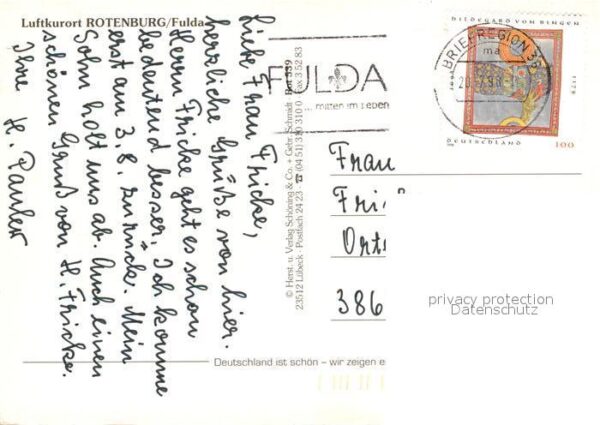 Luftkurort ROTENBURG/Fulda
Liebe Frau Fricke,
herzliche Grüße von hier.
Herrn Fricke geht es schon
bedeutend besser. Ich komme
erst am 3. 8. zurück. Mein
Sohn holt uns ab. Auch einen
schönen Gruß von H. Fricke.
Ihre H.
© Herst. u. Verlag Schöning & Co. + Gebr. Schmidt
23512 Lübeck · Postfach 24 23 · ☎ (04 51) 3 10 31 0 · Fax 3 52 83
FULDA
... mitten im Leben
BRIEFREGION 36
HILDEGARD VON BINGEN
1098
1179
DEUTSCHLAND 100
Frau
Fri
Orts
386
privacy protection
Datenschutz
Deutschland ist schön – wir zeigen e